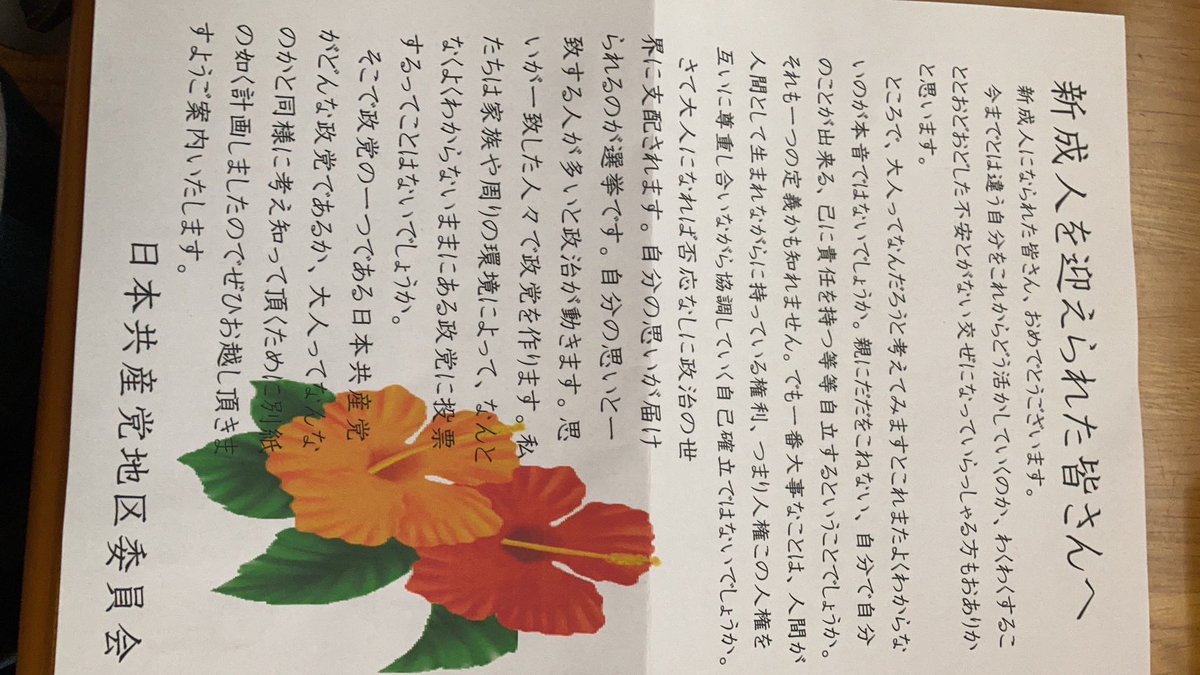 新成人を迎えられた皆さんへ
新成人になられた皆さん、おめでとうございます。
今までとは違う自分をこれからどう活かしていくのか、わくわくするこ
ととおどおどした不安とがない交ぜになっていらっしゃる方もおありか
と思います。
ところで、大人ってなんだろうと考えてみますとこれまたよくわからな
いのが本音ではないでしょうか。親にだだをこねない、自分で自分
のことが出来る、己に責任を持つ等等自立するということでしょうか。
それも一つの定義かも知れません。でも一番大事なことは、人間が
人間として生まれながらに持っている権利、つまり人権この人権を
互いに尊重し合いながら協調していく自己確立ではないでしょうか。
さて大人になれば否応なしに政治の世
界に支配されます。自分の思いが届け
られるのが選挙です。自分の思いと一
致する人が多いと政治が動きます。思
いが一致した人々で政党を作ります。私
たちは家族や周りの環境によって、なんと
なくよくわからないままにある政党に投票
するってことはないでしょうか。
そこで政党の一つである日本共産党
がどんな政党であるか、大人ってなんな
のかと同様に考え知って頂くために別紙
の如く計画しましたのでぜひお越し頂きま
すようご案内いたします。
日本共産党地区委員会